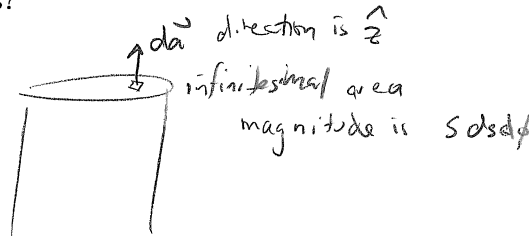 s?
da⃗ direction is ẑ
infinitesimal area
magnitude is s ds dϕ